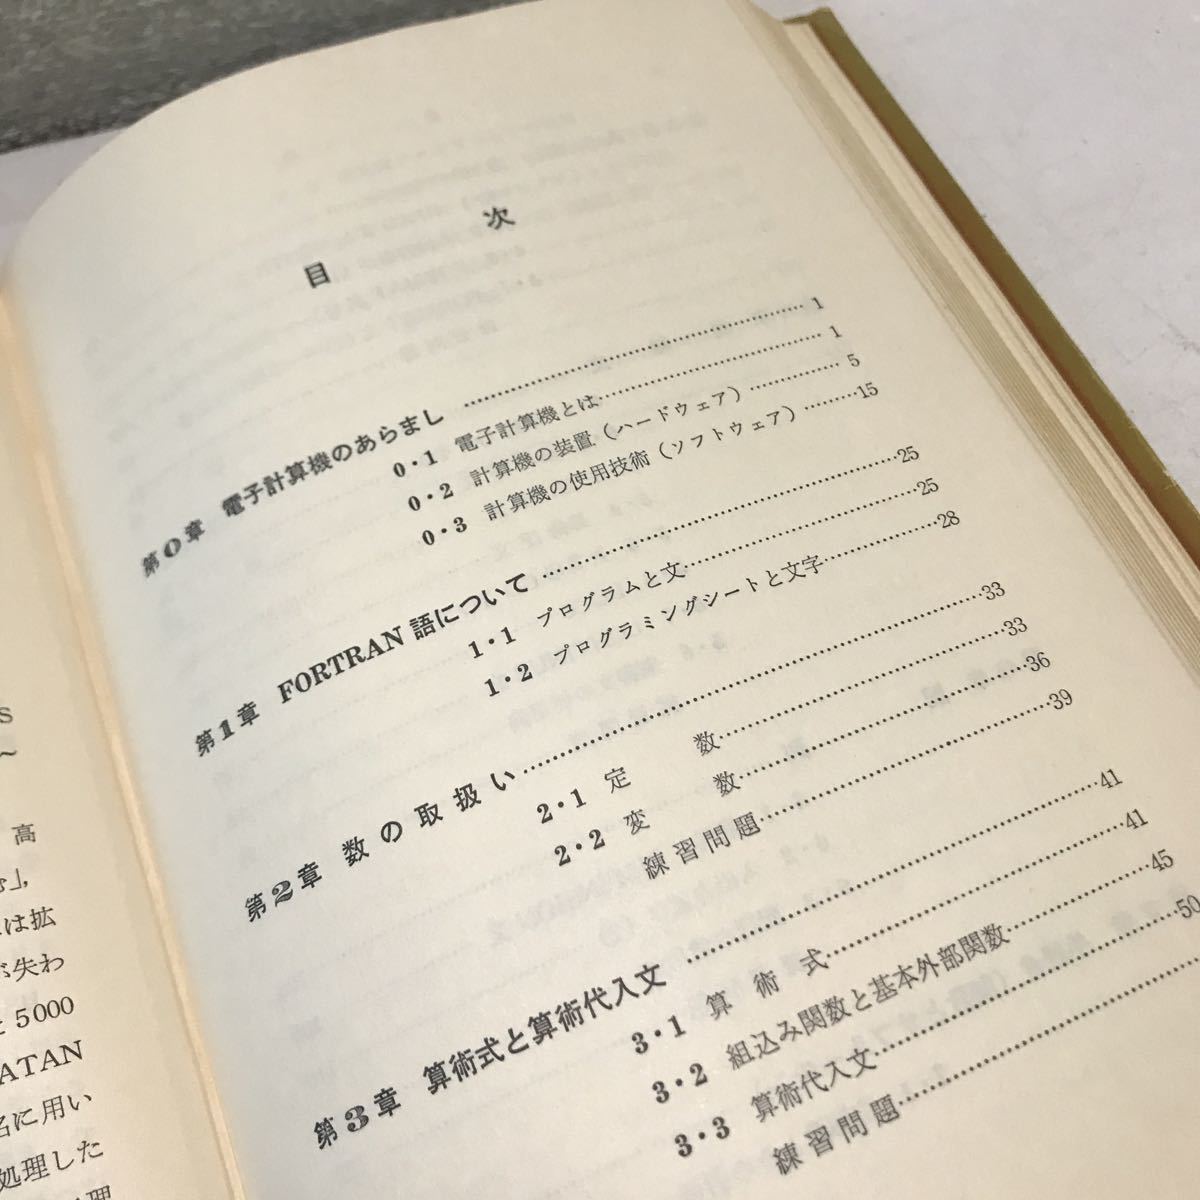 目次
第0章 電子計算機のあらまし……1
0・1 電子計算機とは……1
0・2 計算機の装置（ハードウェア）……5
0・3 計算機の使用技術（ソフトウェア）……15
第1章 FORTRAN語について……25
1・1 プログラムと文……25
1・2 プログラミングシートと文字……28
第2章 数の取扱い……33
2・1 定数……33
2・2 変数……36
練習問題……39
第3章 算術式と算術代入文……41
3・1 算術式……41
3・2 組込み関数と基本外部関数……45
3・3 算術代入文……50
練習問題……
S
〜
高
」,
は拡
失わ
5000
ATAN
名に用い
処理した
理